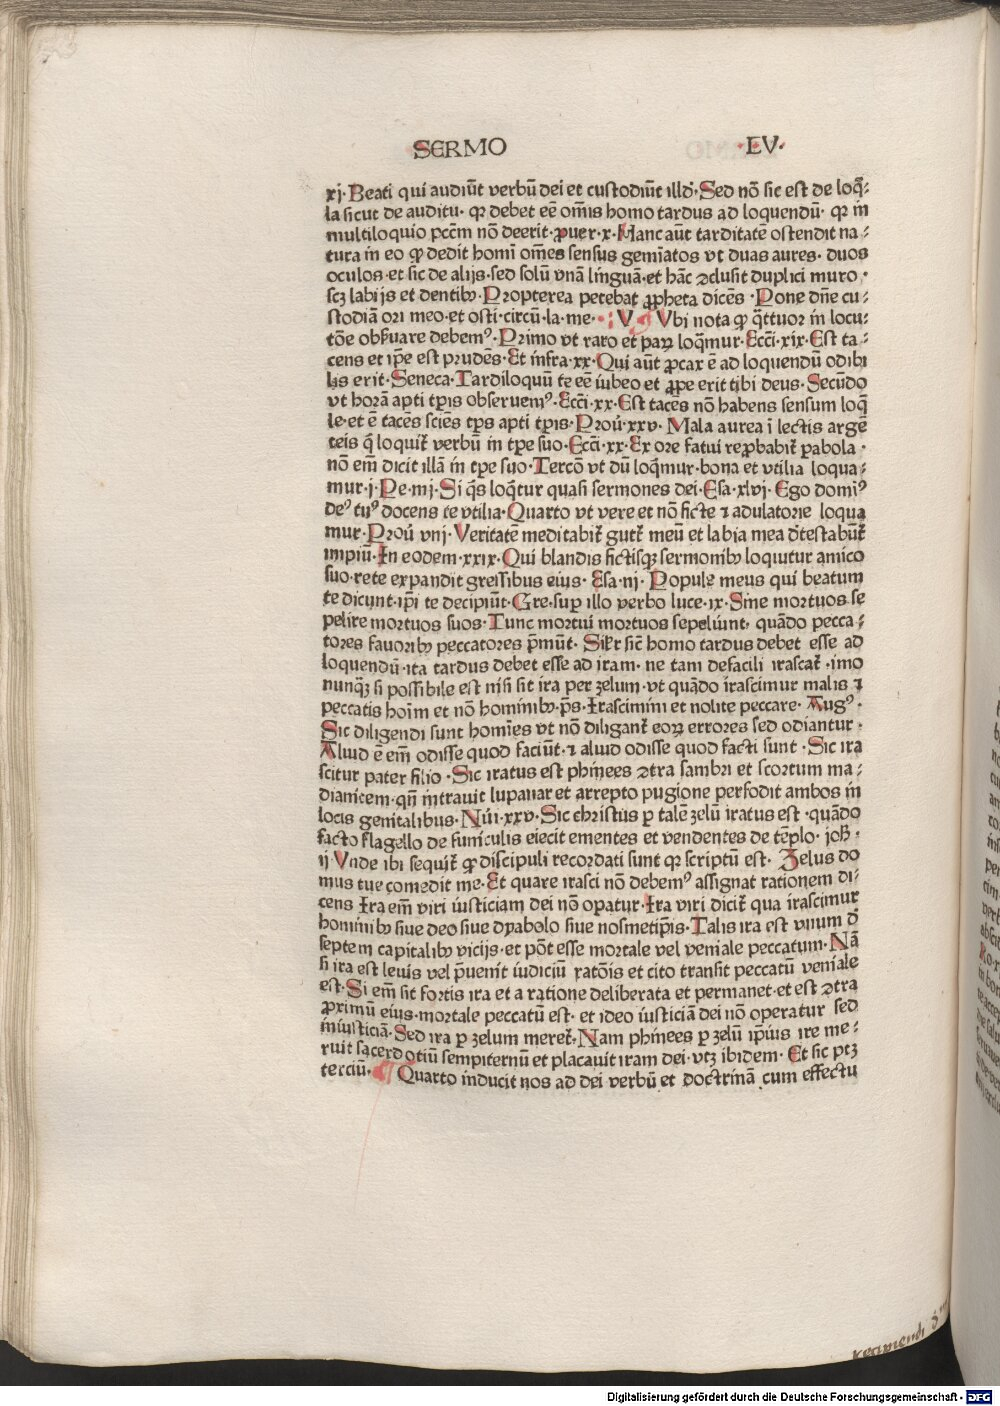 SERMO ·LV·
xj·Beati qui audiūt verbū dei et custodiūt illd·Sed nō sic est de loq̄⸗
la sicut de auditu· qꝛ debet eē om̄is homo tardus ad loquendū· qꝛ in
multiloquio pctm̄ nō deerit·ꝓuer·x·Hanc aūt tarditatē ostendit na⸗
tura in eo qꝙ dedit homī om̄es sensus gemīatos vt duas aures· duos
oculos·et sic de alijs·sed solū vnā linguā·et hāc ꝯclusit duplici muro·
scꝫ labijs et dentibꝫ·Propterea petebat ꝓpheta dicēs·Pone dn̄e cu⸗
stodiā ori meo·et osti·circū·la·me· V Vbi nota qꝙ q̄ttuor in locu⸗
tōe obẜuare debemꝰ·Primo vt raro et paꝝ loq̄mur·Ecci·xix·Est ta⸗
cens et ip̄e est prudēs·Et infra·xx·Qui aūt ꝓcax ē ad loquendū odibi
lis erit·Seneca·Tardiloquū te eē iubeo et ꝓpe erit tibi deus·Secūdo
vt horā apti tp̄ris obseruemꝰ·Ecci·xx·Est tacēs nō habens sensum loq̄
le·et ē tacēs sciēs tp̄s apti tp̄ris·Proū·xxv·Mala aurea ī lectis argē
teis q̄ loquiť verbū in tp̄e suo·Ecci·xx·Ex ore fatui reꝓbabiť ꝑabola·
nō em̄ dicit illā in tp̄e suo·Tercō vt dū loq̄mur·bona et vtilia loqua⸗
mur·j·Pe·iiij·Si q̄s loq̄tur quasi sermones dei·Esa·xlvj·Ego domīꝰ
deꝰ tuꝰ docens te vtilia·Quarto vt vere et nō ficte ⁊ adulatorie loqua
mur·Proū viij·Veritatē meditabiť gutť meū et labia mea ďtestabūť
impiū·In eodem·xxix·Qui blandis fictisqꝫ sermonibꝫ loquiutur amico
suo·rete expandit gressibus eius· Esa·iij· Popule meus qui beatum
te dicunt·ip̄i te decipiūt·Gre·suꝑ illo verbo luce·ix·Sine mortuos se
pelire mortuos suos·Tunc mortui mortuos sepeliunt· quādo pecca⸗
tores fauoribꝫ peccatores p̄mūt· Sikr sic̄ homo tardus debet esse ad
loquendū·ita tardus debet esse ad iram· ne tam defacili irascať·imo
nunq̄ꝫ si possibile est nisi sit ira per zelum·vt quādo irascimur malis ⁊
peccatis hoīm et nō hominibꝫ·p̄s·Irascimini et nolite peccare· Augꝰ·
Sic diligendi sunt homīes vt nō diliganť eoꝝ errores sed odiantur·
Aliud ē em̄ odisse quod faciūt·⁊ aliud odisse quod facti sunt·Sic ira
scitur pater filio·Sic iratus est phinees ꝯtra sambri et scortum ma⸗
dianicem·qn̄ intrauit lupanar et arrepto pugione perfodit ambos in
locis genitalibus·Nūi·xxv·Sic christus ꝑ talē zelū iratus est·quādo
facto flagello de funiculis eiecit ementes et vendentes de tēplo· joh̄·
ij Vnde ibi sequiť qꝙ discipuli recordati sunt qꝛ scriptū est· Zelus do
mus tue comedit me·Et quare irasci nō debemꝰ assignat rationem di⸗
cens Ira em̄ viri iusticiam dei nō oꝑatur·Ira viri diciť qua irascimur
hominibꝫ siue deo siue dyabolo siue nosmetip̄is·Talis ira est vnum ď
septem capitalibꝫ vicijs·et pōt esse mortale vel veniale peccatum·Nā
si ira est leuis vel p̄uenit iudiciū ratōis et cito transit peccatū veniale
est·Si em̄ sit fortis ira et a ratione deliberata et permanet·et est ꝯtra
ꝓximū eius·mortale peccatū est· et ideo iusticiā dei nō operatur sed
iniusticiā·Sed ira ꝑ zelum mereť·Nam phinees ꝑ zelū ip̄ius ire me⸗
ruit sacerdotiū sempiternū et placauit iram dei·vtꝫ ibidem· Et sic ptꝫ
terciū· Quarto inducit nos ad dei verbū et doctrinā cum effectu
Digitalisierung gefördert durch die Deutsche Forschungsgemeinschaft - DFG